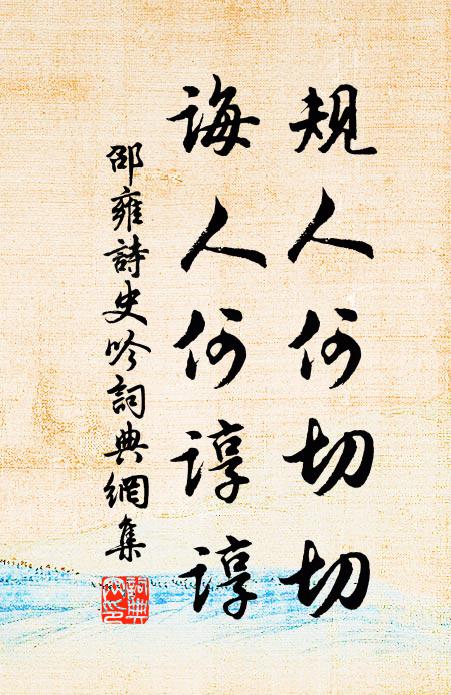 規人何切切
誨人何諄諄
邵雍詩史吟詞典網集